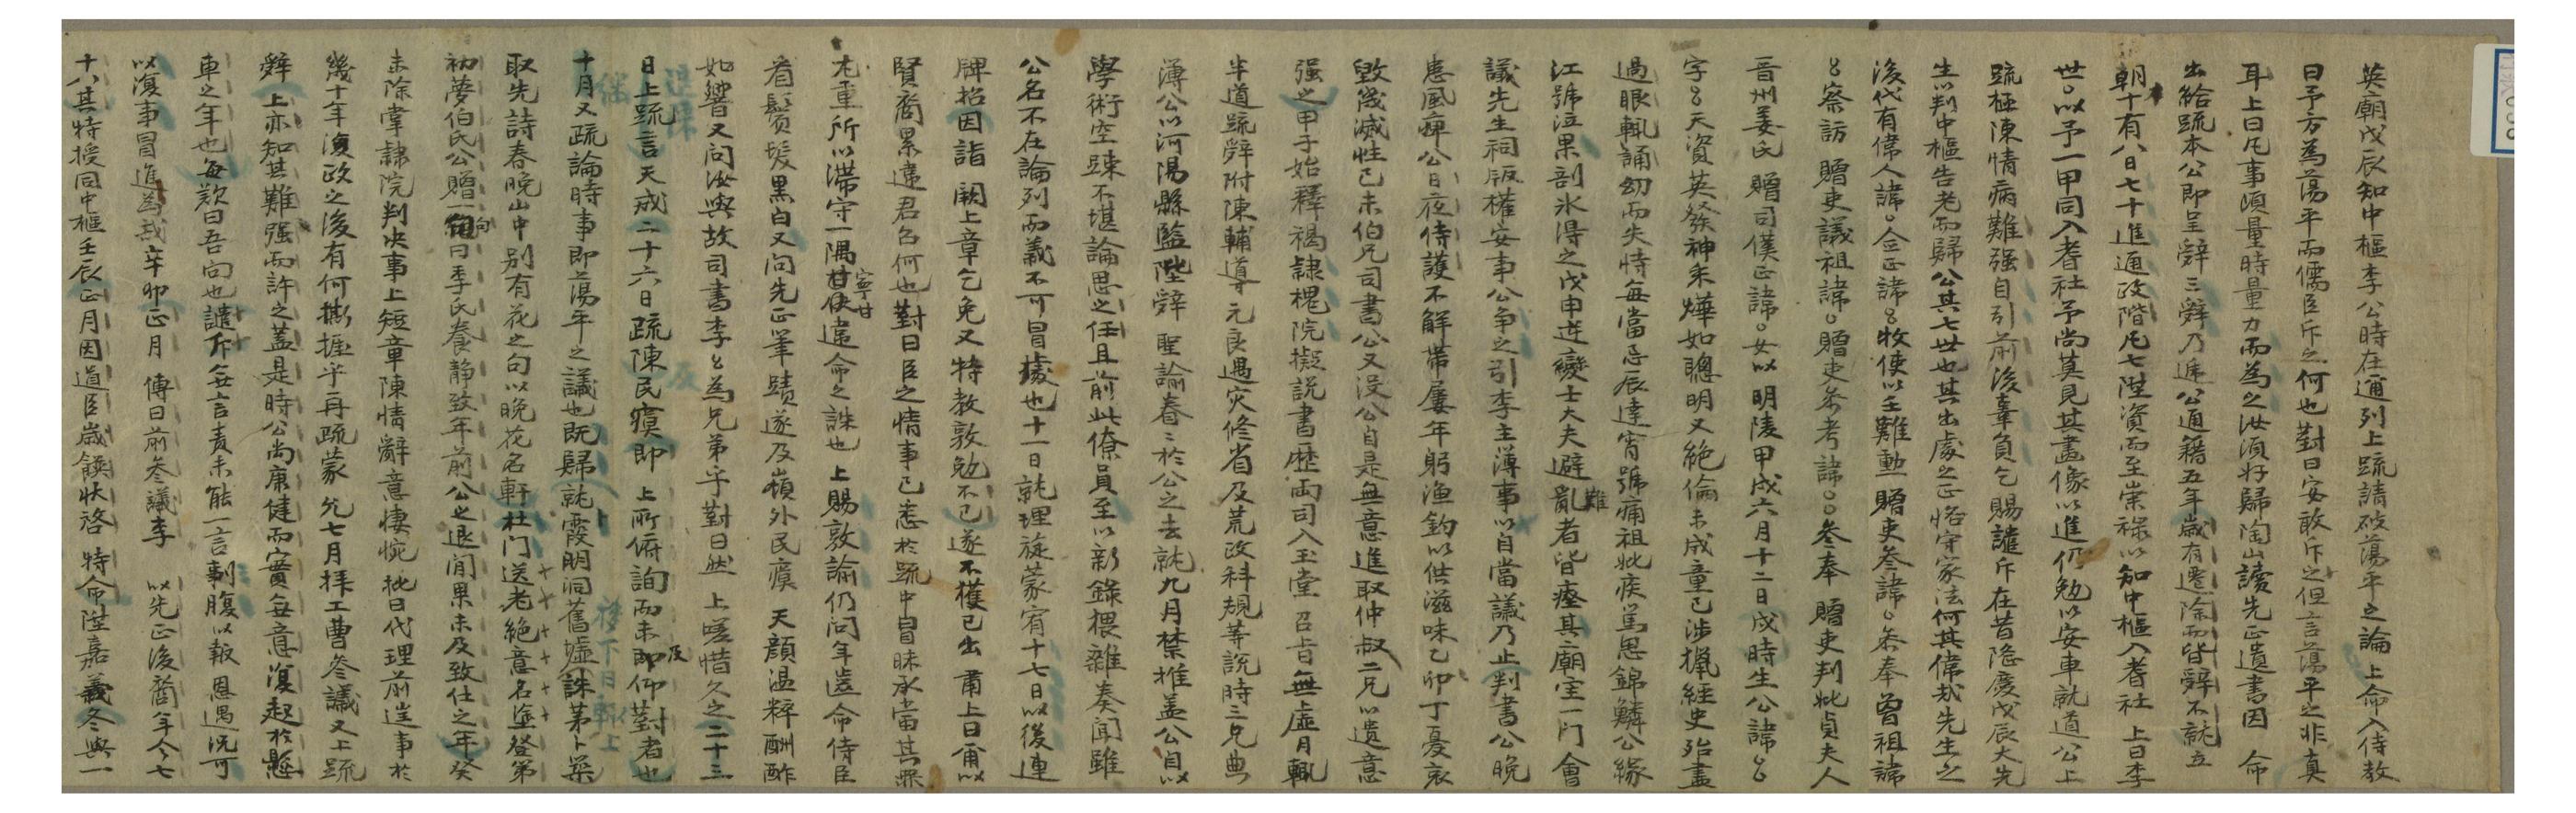 英廟戊辰知中樞李公時在通列上疏請破蕩平之論 上命入侍教
曰予方為蕩平而儒臣斥之何也對曰安敢斥之但言蕩平之非真
耳上曰凡事須量時量力而為之汝須好歸陶山讀先正遺書因 命
出給疏本公即呈辭三辭乃遞公通籍五年歲有遷除而皆辭不就五
朝十有八日七十進通政階凡七陞資而至崇祿以知中樞入耆社 上曰李
世○以予一甲同入耆社予尚莫見其畫像以進仍勉以安車就道公上
疏極陳情病難强自引前後辜負乞賜譴斥在昔隆慶戊辰大先
生以判中樞告老而歸公其七世也其出處之正恪守家法何其偉哉先生之
後代有偉人諱○僉正諱○○牧使以壬難勳 贈吏參諱○參奉曾祖諱
○○察訪 贈吏議祖諱○贈吏參考諱○○參奉 贈吏判妣貞夫人
晋州姜氏 贈司僕正諱○女以明陵甲戌六月十二日戌時生公諱○○
字○○天資英發神采燁如聰明又絶倫未成童已涉獵經史殆盡
過眼輒誦幼而失恃每當忌辰達宵號痛祖妣疾篤思錦鱗公緣
江號泣果剖氷得之戊申逆變士大夫避亂難者皆瘞其廟主一門會
議先生祠版權安事公争之引李主簿事以自當議乃止判書公晩
患風痺公日夜侍護不解帶屢年躬漁釣以供滋味乙卯丁憂哀
毁幾滅性己未伯兄司書公又没公自是無意進取仲叔二兄以遺意
强之甲子始釋褐隷槐院擬說書歷兩司入玉堂 召旨無虛月輒
半道疏辭附陳輔導元良遇灾修省及荒政科規等說時三兄典
薄公以河陽縣監陞辭 聖諭眷〻於公之去就九月禁推盖公自以
學術空踈不堪論思之任且前此僚員至以新錄猥雜奏聞雖
公名不在論列而義不可冒據也十一日就理旋蒙宥十七日以後連
牌招因詣 闕上章乞免又特教敦勉不已遂不獲已出 肅上曰甫以
賢裔累違君召何也對曰臣之情事已悉於疏中冒昧承當其罪
尤重所以滯守一隅寧甘甘伏違命之誅也 上賜敦諭仍問年造命侍臣
看鬂髮黑白又問先正筆蹟遂及嶺外民瘼 天顔温粹酬酢
如響又問汝與故司書李○為兄弟乎對曰然 上嗟惜久之二十三
日上疏言天戒二十六日疏陳民瘼即 上所俯詢而未及即仰對者也
十月又疏論時事即蕩平之議也既歸就霞明洞舊墟誅茅卜築
取先詩春晩山中别有花之句以晩花名軒杜門送老絶意名塗登第
初夢伯氏公贈一句曰季氏養静致年前公之退閒果未及致仕之年癸
未除掌隷院判决事上短章陳情辭意悽惋批曰代理前逬事於
幾十年復政之後有何撕捱乎再疏蒙 允七月拜工曹參議又上疏
辭 上亦知其難强而許之盖是時公尚康健而實每意復起於懸
車之年也每歎曰吾向也譴斥每言责未能一言剚腹以報 恩遇况可
以復事冒進為哉辛卯正月 傳曰前參議李 以先正後裔年今七
十八其特授同中樞壬辰正月因道臣歲饌状啓 特命陞嘉義冬與一